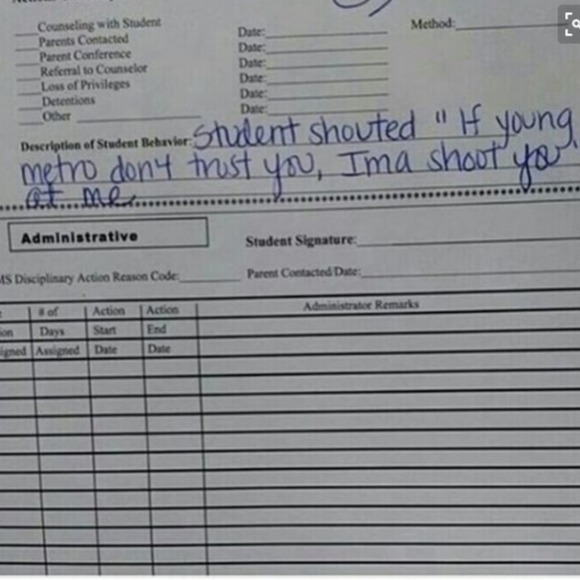 Counseling with Student
Parents Contacted Date: Method:
Parent Conference Date:
Referral to Counselor Date:
Loss of Privileges Date:
Detentions Date:
Other Date:
Description of Student Behavior: Student shouted "If young
metro don't trust you, Ima shoot you"
at me
Administrative
Student Signature:
MS Disciplinary Action Reason Code: Parent Contacted/Date:
# of Action Action Administrator Remarks
Days Start End
Assigned Date Date